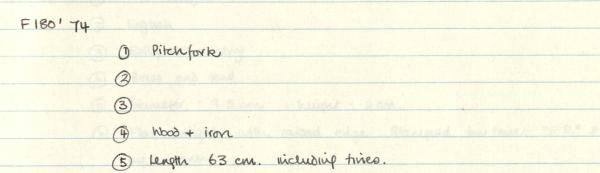 F180' 74
① Pitchfork
②
③
④ Wood + iron
⑤ Length 63 cm. including tines.